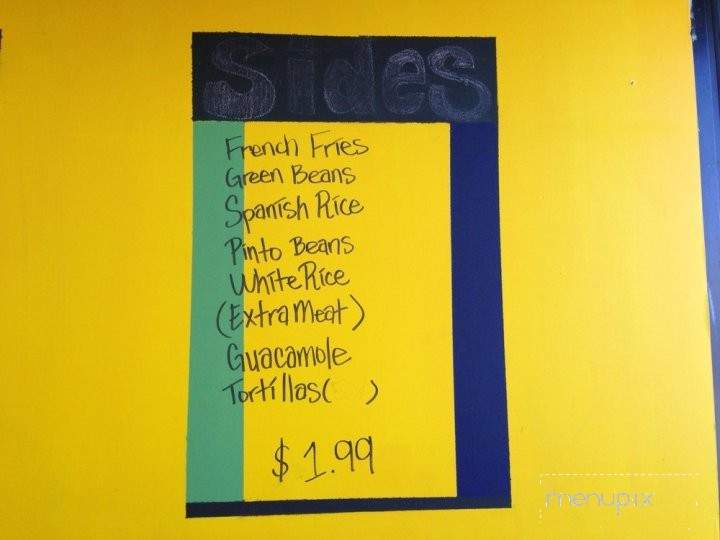 Sides
French Fries
Green Beans
Spanish Rice
Pinto Beans
White Rice
(Extra Meat)
Guacamole
Tortillas( )
$ 1.99
menupix